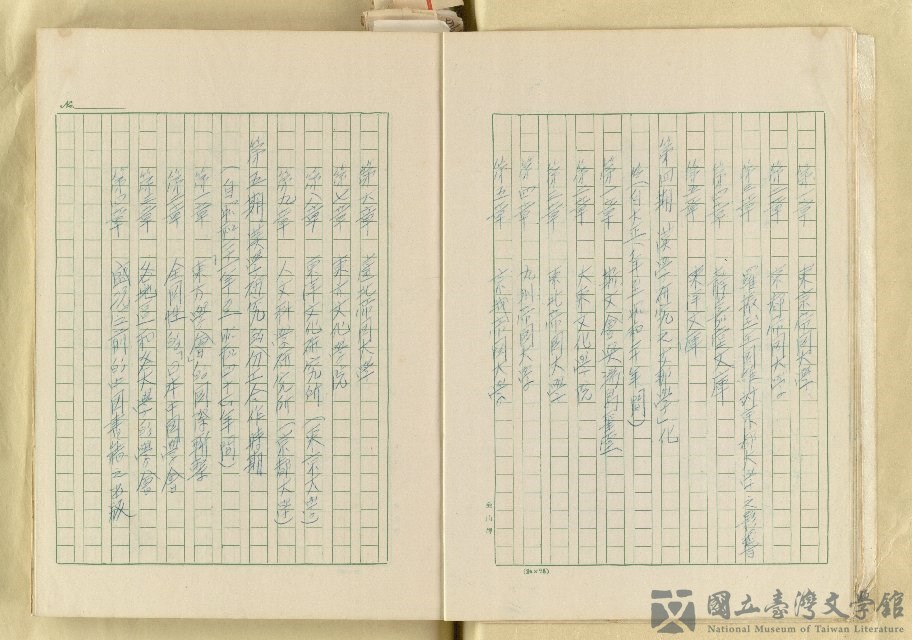 第一章 東京帝國大學
第二章 京都帝國大學
第三章 羅振玉王國維對京都大學之影響
第四章 靜嘉堂文庫
第五章 東洋文庫
第四期 漢學研究之支那學化
(自大正八年至昭和二年間)
第一章 斯文會與湯島聖堂
第二章 大東文化學院
第三章 東北帝國大學
第四章 九州帝國大學
第五章 京城帝國大學
第六章 臺北帝國大學
第七章 東方文化學院
第八章 東洋文化研究所(東京大學)
第九章 人文科學研究所(京都大學)
第五期 漢學研究的分工合作時期
(自昭和二十年至昭和五十六年間)
第一章 東方學會的國際貢獻
第二章 全國性的「日本中國學會」
第三章 各地區和各大學的學會
第四章 國訳之前的中國書籍之出版
No.
(20×78)
國立臺灣文學館
National Museum of Taiwan Literature